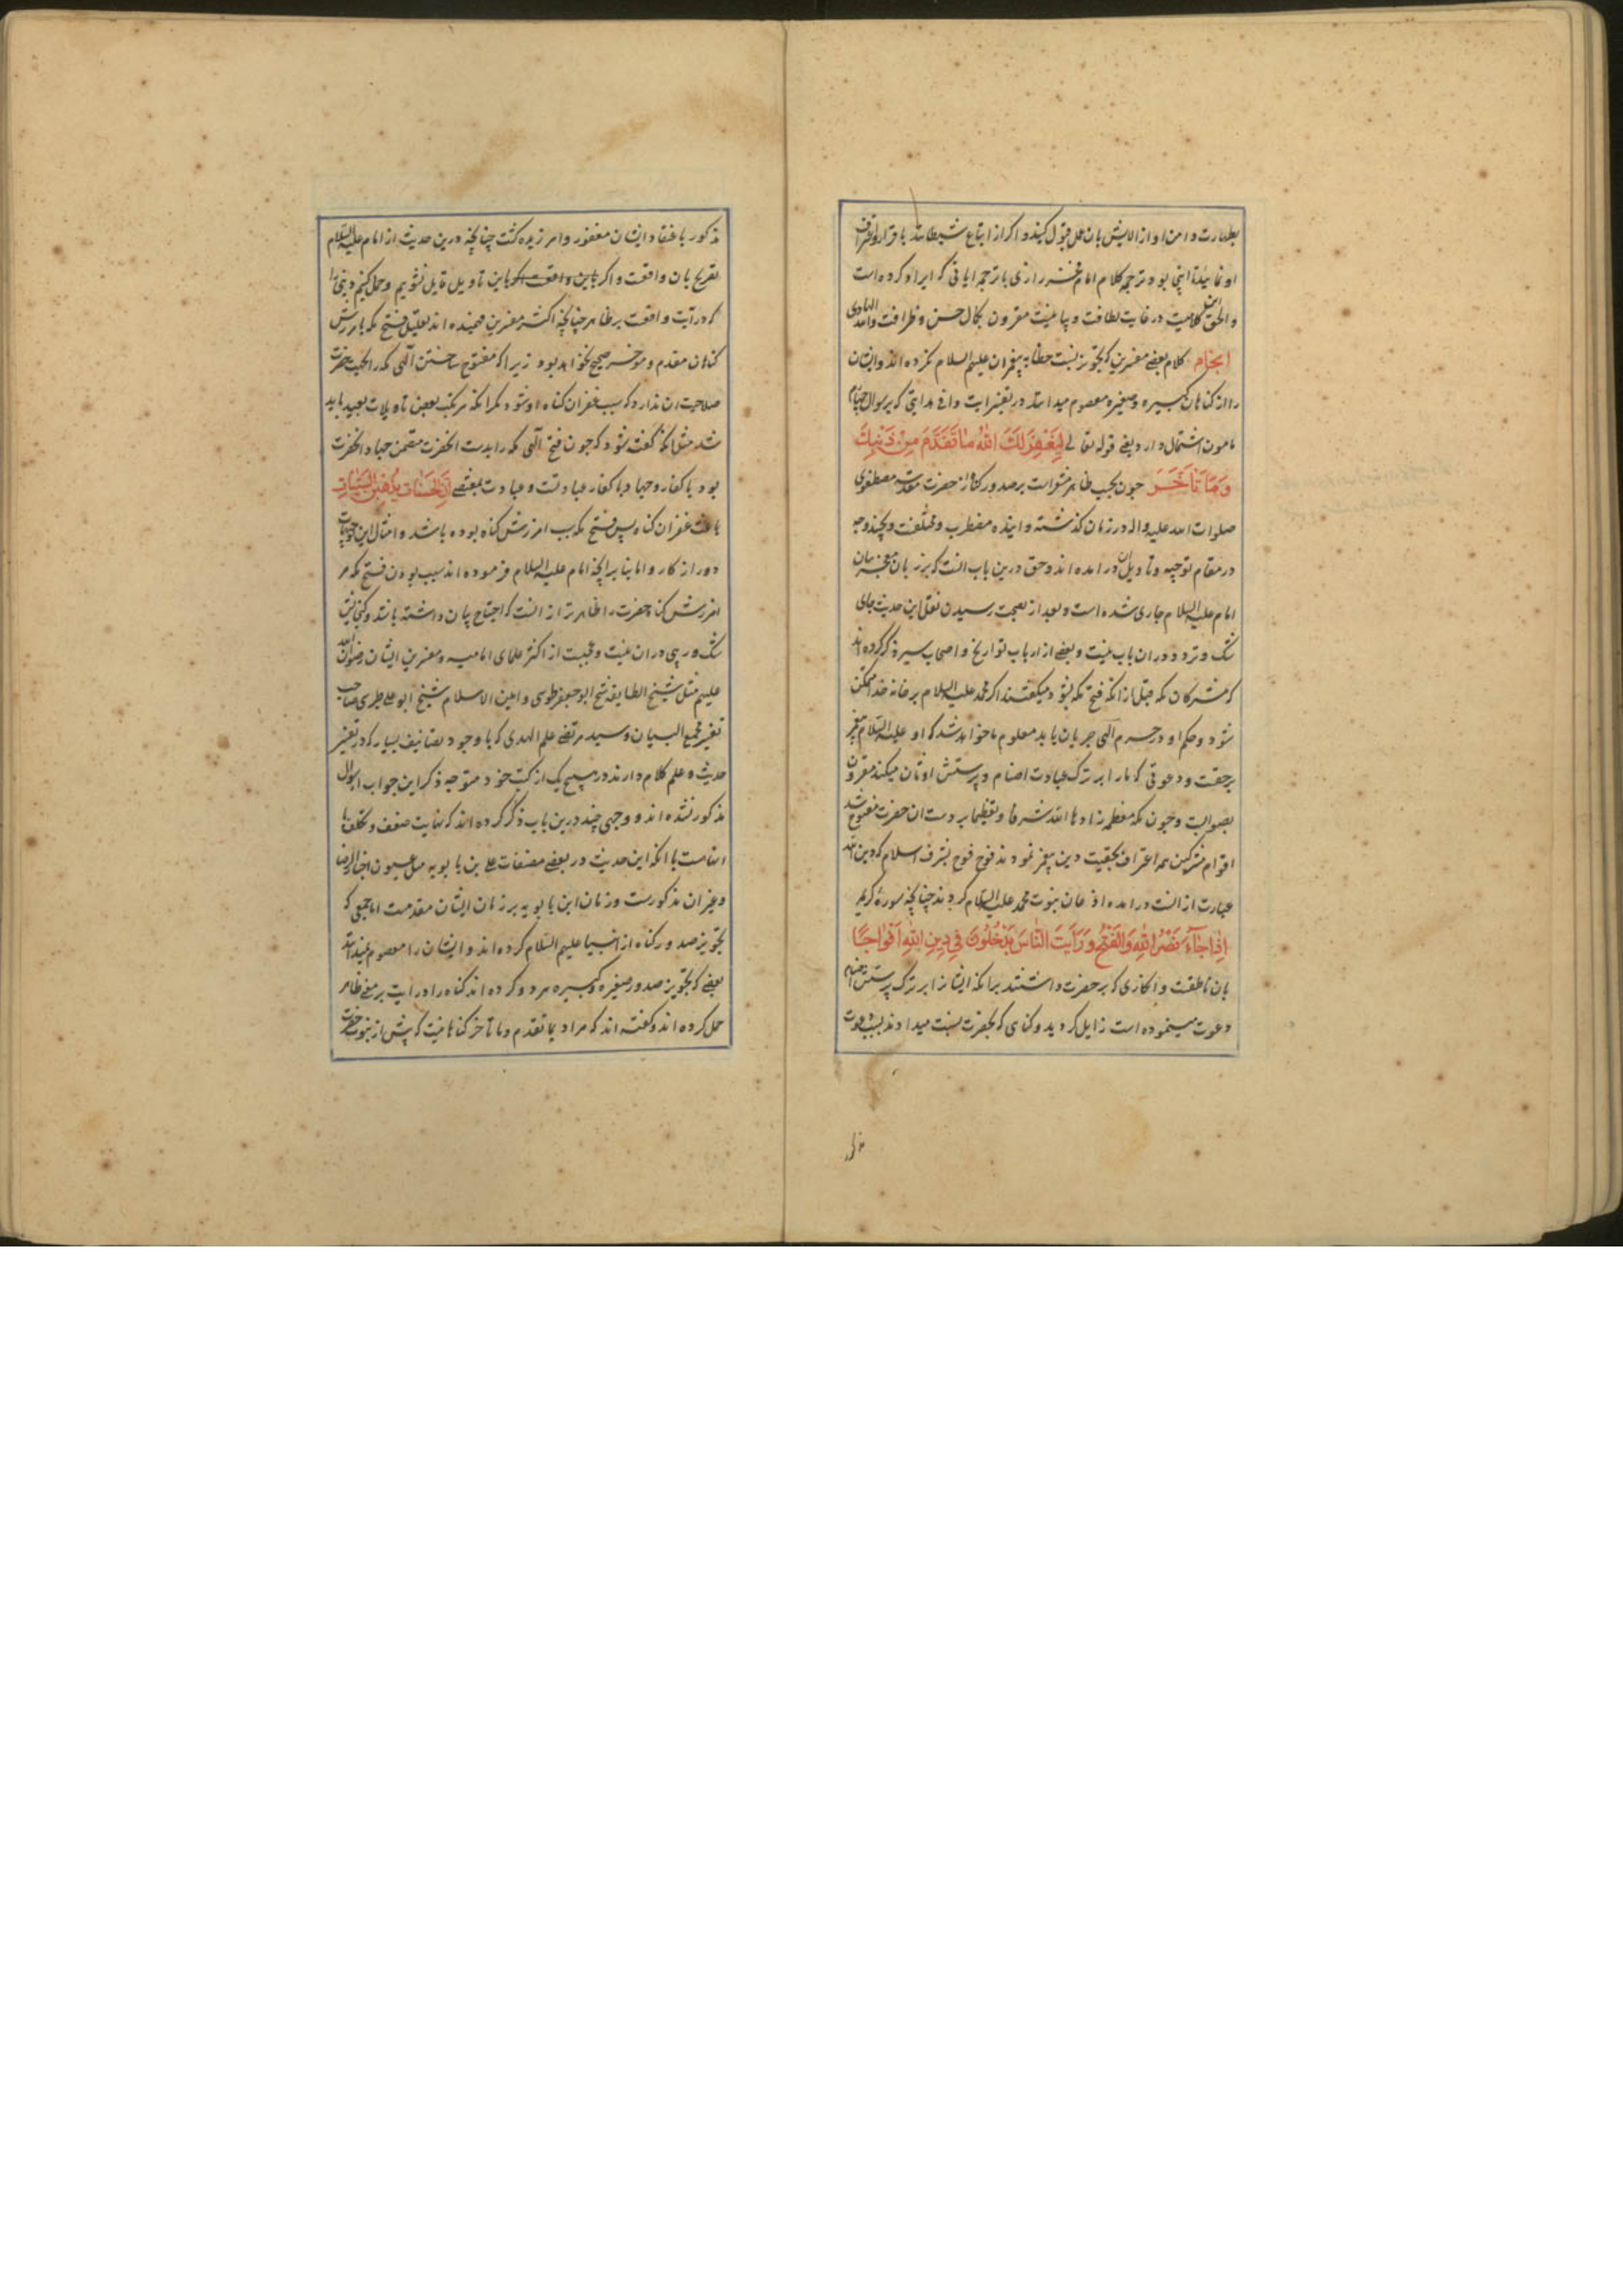 بطهارت دامن او از الایش بان عمل قبول کیند و اکر از اتباع شیطانند باقرار و اعتراف
او نمایند تا اینجا بود ترجمه کلام امام فخر رازی با ترجمه ایاتی که ایراد کرده است
و الحق این کلامیست در غایت لطافت و بیانیست مقرون بکمال حسن و ظرافت والله الهادی
انجام کلام بعضے مفسرین که تجویز نسبت خطا به پیغمبران علیهم السلام نکرده اند و ایشان
را از کناهان کبیره و صغیره معصوم میدانند در تفسیر ایت وافی هدایتی که برسوال
مامون اشتمال دارد یعنے قوله تعالے لِیَغْفِرَ لَکَ اللّٰهُ مَا تَقَدَّمَ مِنْ ذَنْبِکَ
وَمَا تَاَخَّرَ چون بحسب ظاهر مشعر است بر صدور کناه از حضرت مقدسه مصطفوی
صلوات الله علیه واله در زمان کذشته و اینده مضطرب و مختلفست و بچند وجه
در مقام توجیه و تاویل ان در امده اند و حق درین باب انست که بر زبان معجز بیان
امام علیه السلام جاری شده است و بعد از بصحت رسیدن نقل این حدیث جای
شک و تردد در ان باب نیست و بعضے از ارباب تواریخ و اصحاب سیر ذکر کرده اند
که مشرکان مکه قبل از انکه فتح مکه بشود میکفتند اکر محمد علیه السلام بر خانه خدا متمکن
شود و حکم او در حرم الهی جریان یابد معلوم ما خواهد شد که او علیه السلام پیغمبر
برحقست و دعوتی که ما را بر ترک عبادت اصنام و پرستش اوثان میکند مقرون
بصوابست و چون مکه معظمه زادها الله شرفا و تعظیما بر دست ان حضرت مفتوح شد
اقوام مشرکین همه اعتراف بحقیت دین پیغمبر نمودند فوج فوج بشرف اسلام که دین الله
عبارت از انست در امده اذعان بنبوت محمد علیه السلام کردند چنانچه سورهٔ کریمه
اِذَا جَآءَ نَصْرُ اللّٰهِ وَالْفَتْحُ وَرَاَیْتَ النَّاسَ یَدْخُلُونَ فِی دِینِ اللّٰهِ اَفْوَاجًا
بان ناطقست و انکاری که بر حضرت داشتند برانکه ایشانرا بر ترک پرستش اصنام
دعوت مینموده است زایل کردید و کناهی که بحضرت نسبت میدادند بسبب دعوت
مذکور باعتقاد ایشان مغفور و امرزیده کشت چنانچه درین حدیث از امام علیه السلام
تصریح بان واقعست و اکر باین تاویل قایل نشویم و حمل کنیم ذنبی را
که در آیت واقعست بر ظاهر چنانچه اکثر مفسرین فهمیده اند تعلیل فتح مکه بامرزش
کناهان مقدم و موخر صحیح نخواهد بود زیرا که مفتوح ساختن الهی مکه را بجهت حضرت
صلاحیت ان ندارد که سبب غفران کناه او شود مکر انکه مرتکب بعضی تاویلات بعیده باید
شد مثل انکه کفته شود که چون فتح الهی مکه را بدست انحضرت متضمن جهاد انحضرت
بود با کفار و جهاد با کفار عبادتست و عبادت بمقتضے اِنَّ الْحَسَنَاتِ یُذْهِبْنَ السَّیِّئَاتِ
باعث غفران کناه پس فتح مکه سبب امرزش کناه بوده باشد و امثال این توجیهات
دور از کار و اما بنا برانچه امام علیه السلام فرموده اند سبب بودن فتح مکه مر
امرزش کناه حضرت را ظاهرتر از انست که احتیاج ببیان داشته باشد و کنجایش
شک و ریبی در ان نیست و عجبست از اکثر علمای امامیه و مفسرین ایشان رضوان الله
علیهم مثل شیخ الطایفه شیخ ابو جعفر طوسی و امین الاسلام شیخ ابو علی طبرسی صاحب
تفسیر مجمع البیان و سید مرتضے علم الهدی که با وجود تصانیف بسیار که در تفسیر
حدیث و علم کلام دارند در هیچ یک از کتب خود متوجه ذکر این جواب
مذکور نشده اند و وجهی چند درین باب ذکر کرده اند که نهایت ضعف و تکلف با
انهاست با انکه این حدیث در بعضے مصنفات علی بن بابویه مثل عیون اخبار الرضا
و غیر ان مذکورست و زمان ابن بابویه بر زمان ایشان مقدمست اما جمعی که
تجویز صدور کناه از انبیا علیهم السلام کرده اند و ایشان را معصوم نمیدانند
بعضے که تجویز صدور صغیره و کبیره هر دو کرده اند کناه را در ایت بر معنے ظاهر
حمل کرده اند و کفته اند که مراد بما تقدم وما تاخر کناهانیست که پیش از نبوت حضرت